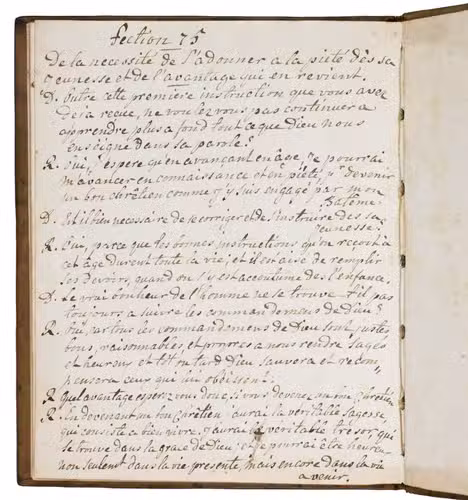 Section 75
De la necessité de s'adonner a la piété dès sa
jeunesse et de l'avantage qui en revient.
D. Outre cette premiere instruction que vous avez
deja reçue, ne voulez vous pas continuer a
apprendre plus a fond tout ce que Dieu nous
enseigne dans sa parole?
R. Oui, j'espere qu'en avancant en âge, je pourrai
m'avancer en connaissance et en piété, pr devenir
un bon chrétien comme j'y suis engagé par mon
Batême.
D. Est il bien necessaire de se corriger et de s'instruire dès sa
jeunesse?
R. Oui, parce que les bonnes instructions qu'on recoit à
cet age durent toute la vie; et il est aisé de remplir
ses devoirs, quand on s'y est accoutumé dès l'enfance.
D. Le vrai bonheur de l'homme ne se trouve t'il pas
toujours a suivre les commandemens de Dieu?
R. Oui, car tous les commandemens de Dieu sont justes
bons, raisonnables, et propres a nous rendre sages
et heureux et tôt ou tard Dieu sauvera et recom
pensera ceux qui lui obéissent.
R. Quel avantage esperez vous donc, si vous devenez un bon Chrétien
R. En devenant un bon Chrétien j'aurai la veritable sagesse
qui consiste a bien vivre, j'aurai ce veritable trésor, qui
se trouve dans la grace de Dieu; et je pourrai etre heureux
non seulement dans la vie presente, mais encore dans la vie
a venir.